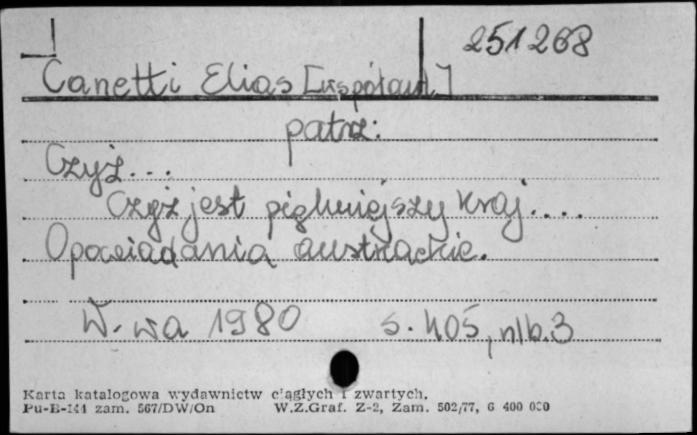 251268
Canetti Elias [współaut.]
patrz:
Czyż...
Czyż jest piękniejszy kraj....
Opowiadania austriackie.
W-wa 1980 s. 405, nlb. 3
Karta katalogowa wydawnictw ciągłych i zwartych.
Pu-B-141 zam. 567/DW/On W.Z.Graf. Z-2, Zam. 502/77, 6 400 000